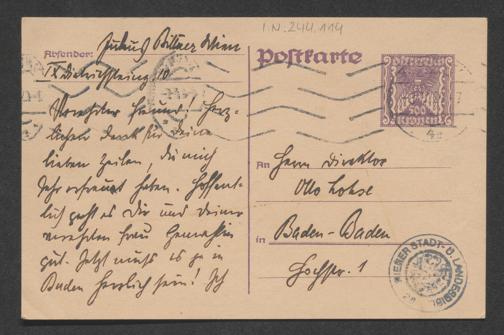 I.N. 244.114
Absender: Julius Bittner Wien
IX
10
Postkarte
Österreich
500
Kronen
Verehrter Freund! Herz-
lichen Dank für Deine
lieben Zeilen, die mich
sehr erfreut haben. Hoffent-
lich geht es Dir und Deiner
verehrten Frau Gemahlin
gut. Jetzt muss es ja in
Baden herrlich sein! Ich
An Herrn Direktor
Otto Lohse
in Baden-Baden
Hochstr. 1
WIENER STADT- U. LANDESBIBL